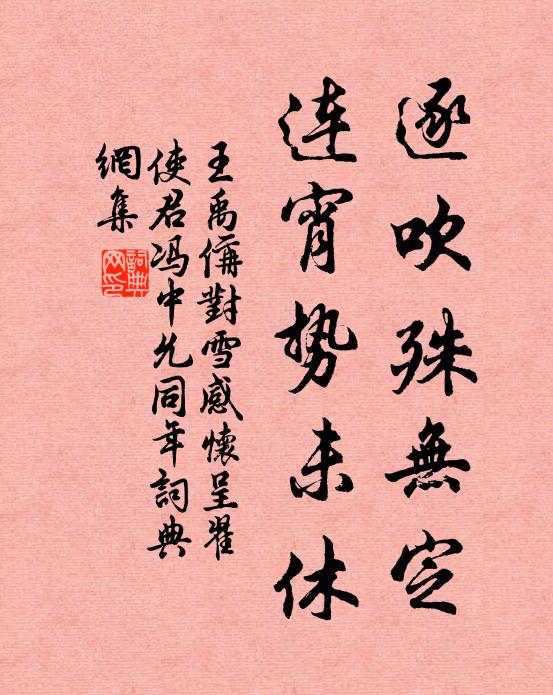 逐吹殊無定
连宵势未休
王禹偁對雪感懷呈翟
使君冯中允同年詞典
網集
詞典网印